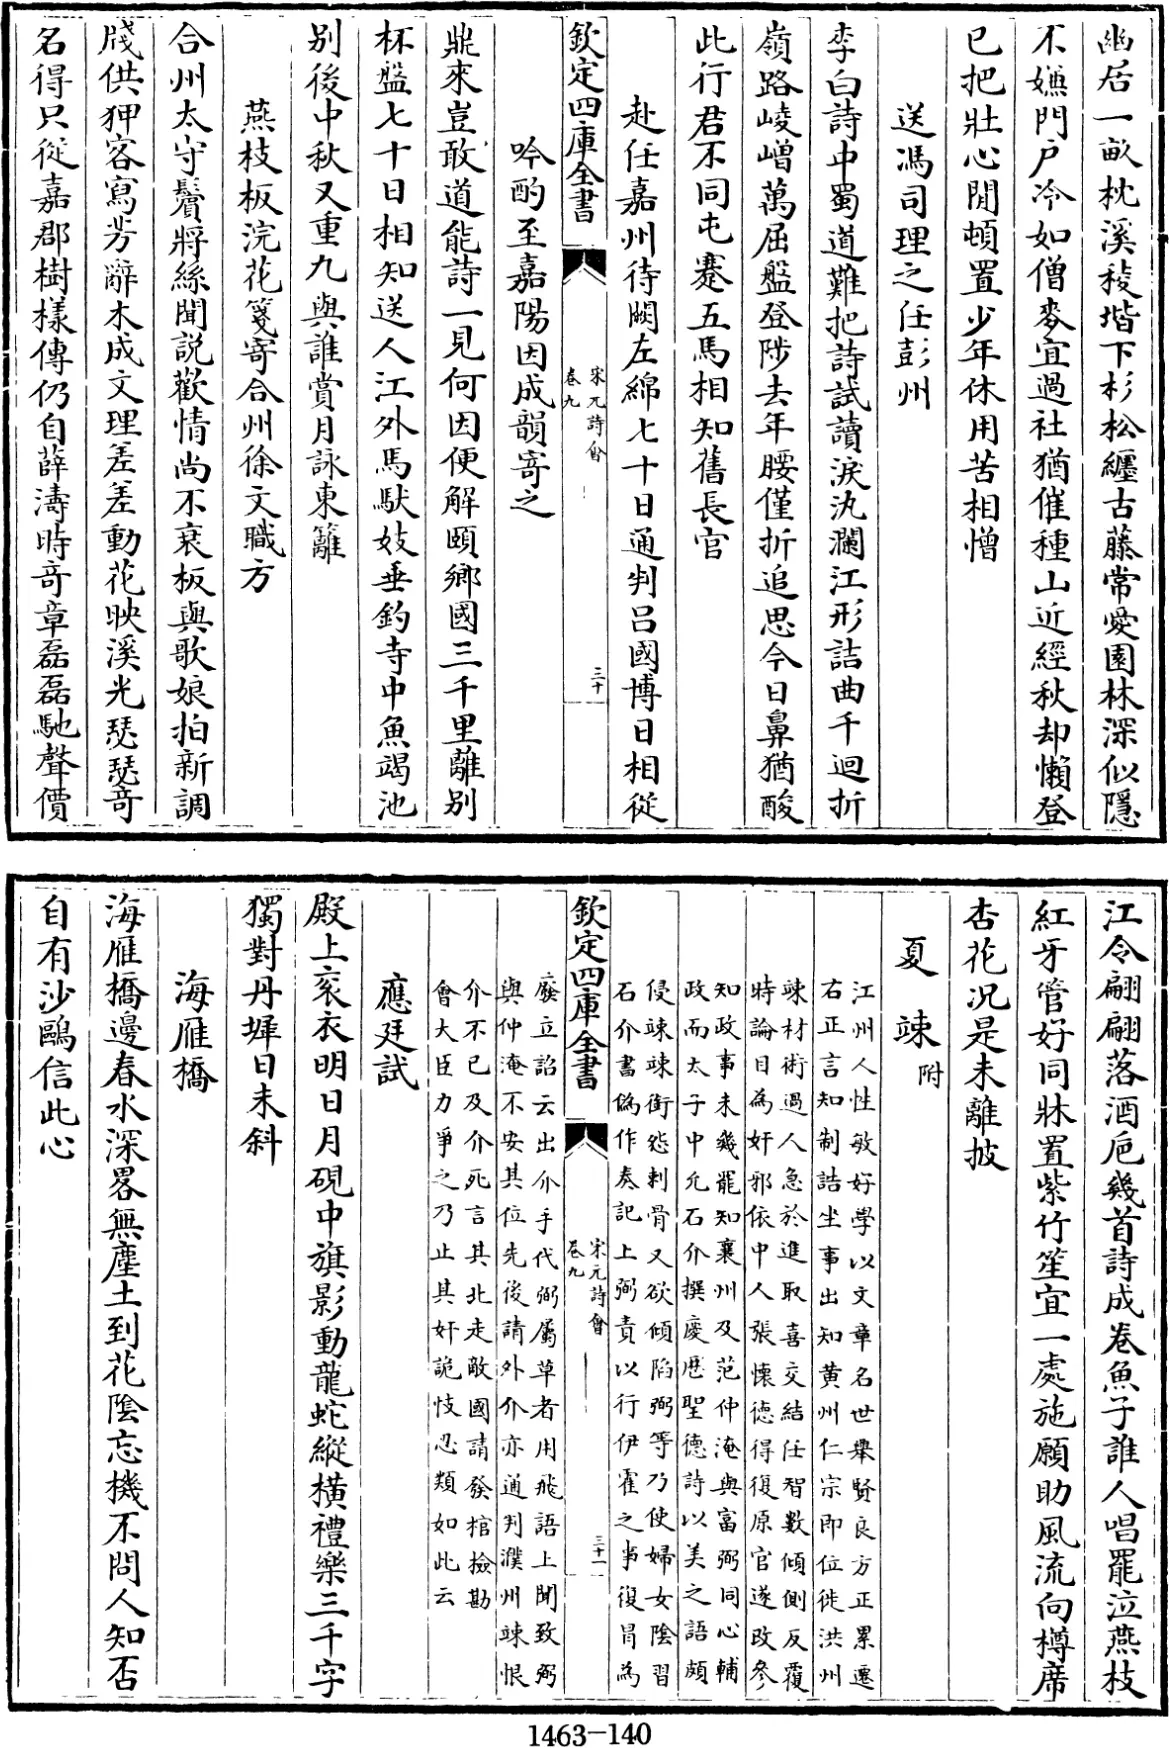 幽居一畝枕溪稜堦下杉松纏古藤常愛園林深似隱
不嫌門戶冷如僧麥宜過社猶催種山近經秋却懶登
已把壯心閒頓置少年休用苦相憎
送馮司理之任彭州
李白詩中蜀道難把詩試讀淚汍瀾江形詰曲千迴折
嶺路崚嶒萬屈盤登陟去年腰僅折追思今日鼻猶酸
此行君不同屯蹇五馬相知舊長官
赴任嘉州待闕左綿七十日通判呂國博日相從
欽定四庫全書
宋元詩會
卷九
三十
吟酌至嘉陽因成韻寄之
鼎來豈敢道能詩一見何因便解頤鄉國三千里離別
杯盤七十日相知送人江外馬馱妓垂釣寺中魚竭池
別後中秋又重九與誰賞月詠東籬
燕枝板浣花箋寄合州徐文職方
合州太守鬢將絲聞說歡情尚不衰板與歌娘拍新調
牋供狎客寫芳辭木成文理差差動花映溪光瑟瑟奇
名得只從嘉郡樹樣傳仍自薛濤時奇章磊磊馳聲價
江令翩翩落酒巵幾首詩成卷魚子誰人唱罷泣燕枝
紅牙管好同牀置紫竹笙宜一處施願助風流向樽席
杏花况是未離披
夏竦附
江州人性敏好學以文章名世舉賢良方正累遷
右正言知制誥坐事出知黄州仁宗即位徙洪州
竦材術過人急於進取喜交結任智數傾側反覆
時論目為奸邪依中人張懷德得復原官遂改參
知政事未幾罷知襄州及范仲淹與富弼同心輔
政而太子中允石介撰慶厯聖德詩以美之語頗
侵竦竦銜怨刺骨又欲傾陷弼等乃使婦女陰習
石介書僞作奏記上弼責以行伊霍之事復冒為
欽定四庫全書
宋元詩會
卷九
三十一
廢立詔云出介手代弼屬草者用飛語上聞致弼
與仲淹不安其位先後請外介亦通判濮州竦恨
介不已及介死言其北走敵國請發棺檢勘
會大臣力爭之乃止其奸詭忮忍類如此云
應廷試
殿上衮衣明日月硯中旗影動龍蛇縱橫禮樂三千字
獨對丹墀日未斜
海雁橋
海雁橋邊春水深畧無塵土到花陰忘機不問人知否
自有沙鷗信此心
1463-140